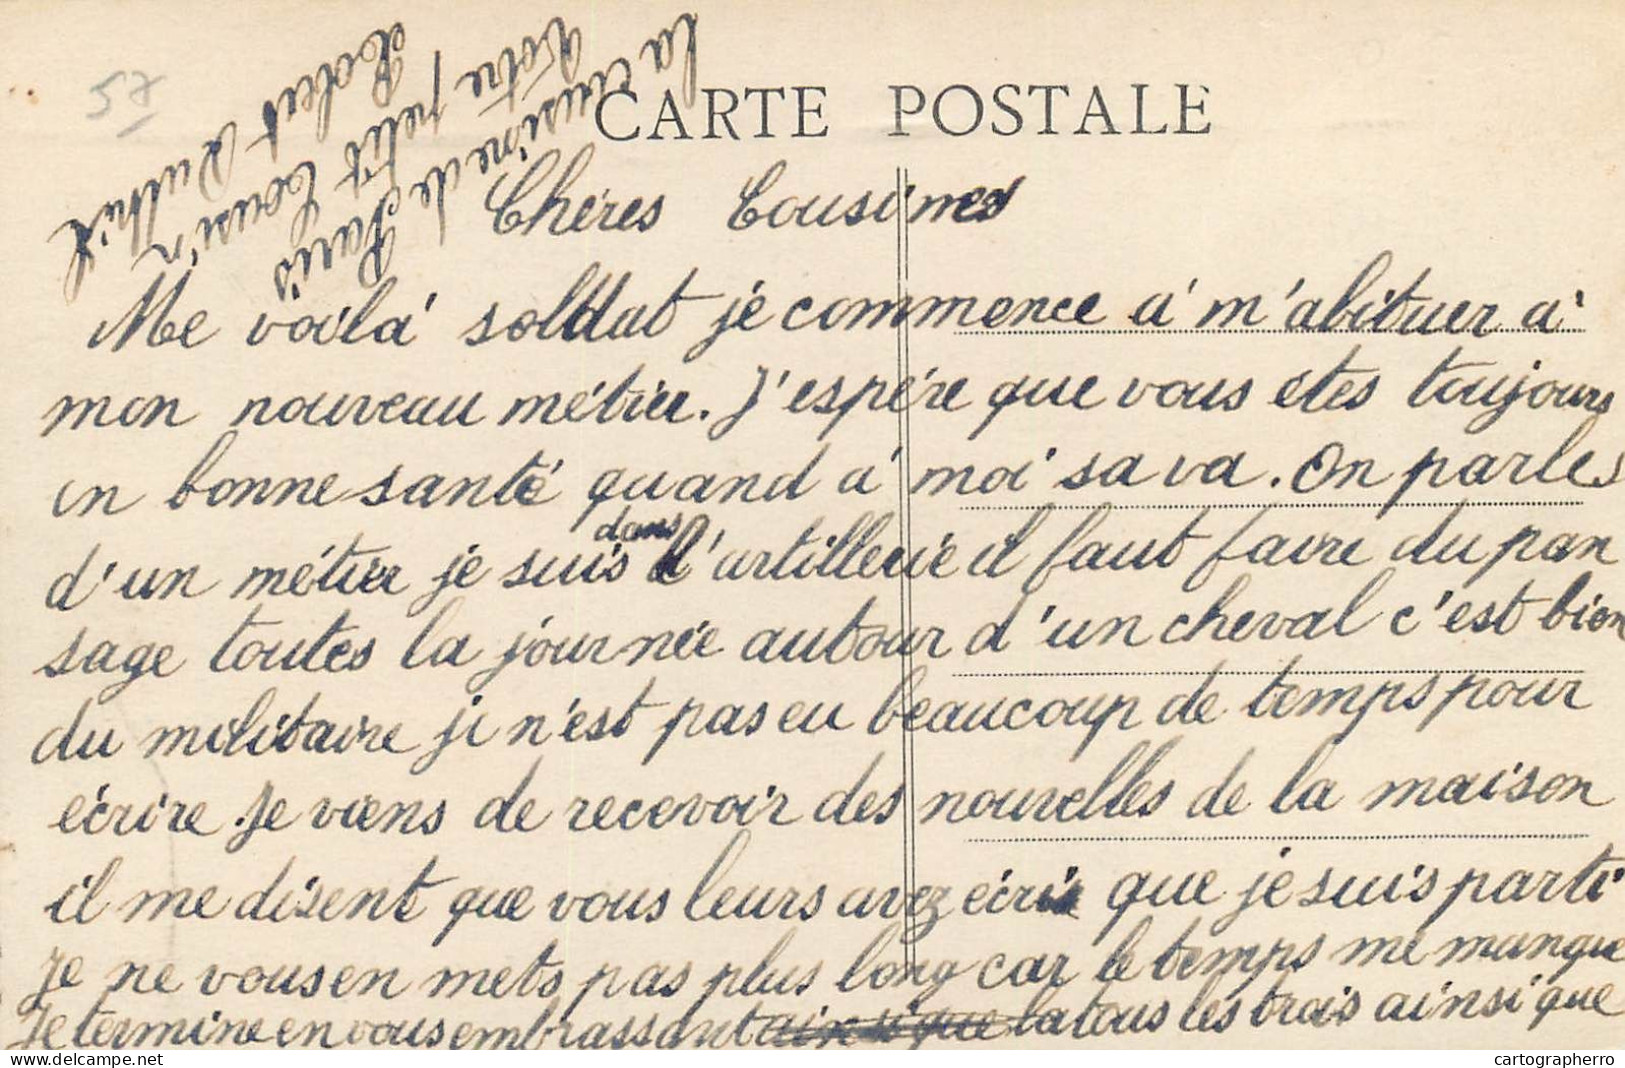 57
CARTE POSTALE
Chères Cousines
Me voilà soldat je commence à m'abituer à
mon nouveau métier. J'espère que vous êtes toujours
en bonne santé quand à moi sa va. On parles
d'un métier je suis dans l'artillerie il faut faire du pan
sage toutes la journée autour d'un cheval c'est bien
du militaire je n'est pas eu beaucoup de temps pour
écrire. Je viens de recevoir des nouvelles de la maison
il me disent que vous leurs avez écris que je suis parti
Je ne vous en mets pas plus long car le temps me manque
Je termine en vous embrassant tous les trois ainsi que
la cousine de Paris
Votre petit Cousin
Robert
cartographerro
delcampe.net